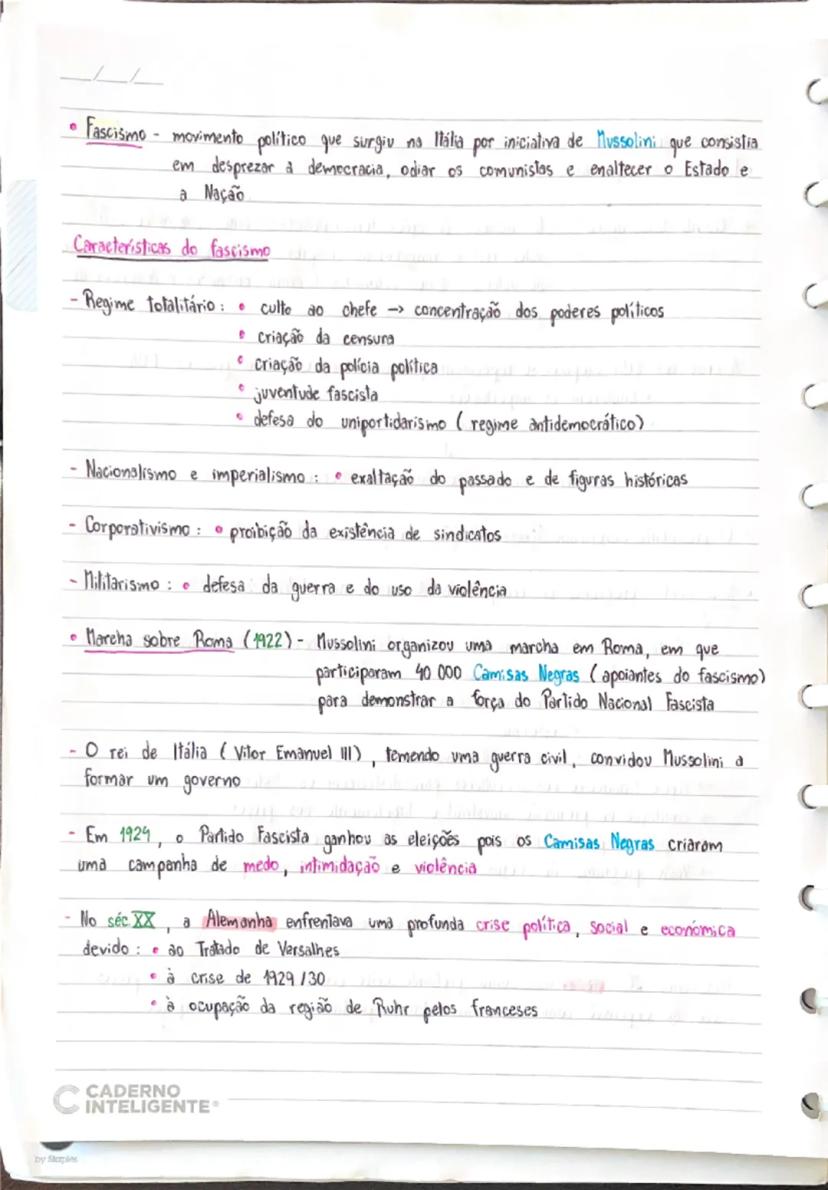 __/__/__
• Fascismo - movimento político que surgiu na Itália por iniciativa de Mussolini que consistia
em desprezar a democracia, odiar os comunistas e enaltecer o Estado e
a Nação
Características do fascismo
- Regime totalitário : • culto ao chefe → concentração dos poderes políticos
• criação da censura
• criação da polícia política
• juventude fascista
• defesa do unipartidarismo ( regime antidemocrático)
- Nacionalismo e imperialismo : • exaltação do passado e de figuras históricas
- Corporativismo : • proibição da existência de sindicatos
- Militarismo : • defesa da guerra e do uso da violência
• Marcha sobre Roma (1922) - Mussolini organizou uma marcha em Roma, em que
participaram 40 000 Camisas Negras ( apoiantes do fascismo)
para demonstrar a força do Partido Nacional Fascista
- O rei de Itália ( Vítor Emanuel III) , temendo uma guerra civil, convidou Mussolini a
formar um governo
- Em 1924 , o Partido Fascista ganhou as eleições pois os Camisas Negras criaram
uma campanha de medo, intimidação e violência
- No séc XX , a Alemanha enfrentava uma profunda crise política, social e económica
devido : • ao Tratado de Versalhes
• à crise de 1929 /30
• à ocupação da região de Ruhr pelos franceses
CADERNO
INTELIGENTE®
by Staples